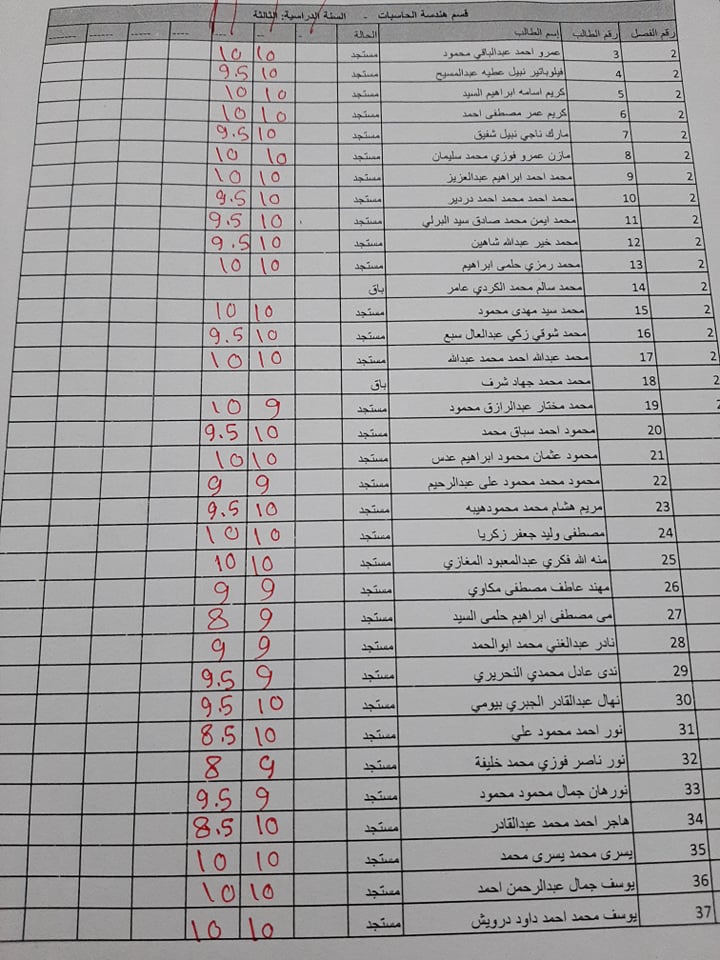 قسم هندسة الحاسبات - السنة الدراسية: الثالثة
رقم الفصل رقم الطالب إسم الطالب الحالة - -- --- ---- ----- ------ -------
2 3 عمرو احمد عبدالباقي محمود مستجد 10 10
2 4 فيلوباتير نبيل عطيه عبدالمسيح مستجد 10 9.5
2 5 كريم اسامه ابراهيم السيد مستجد 10 10
2 6 كريم عمر مصطفى احمد مستجد 10 10
2 7 مارك ناجي نبيل شفيق مستجد 10 9.5
2 8 مازن عمرو فوزي محمد سليمان مستجد 10 10
2 9 محمد احمد ابراهيم عبدالعزيز مستجد 10 10
2 10 محمد احمد محمد احمد دردير مستجد 10 9.5
2 11 محمد ايمن محمد صادق سيد البرلي مستجد 10 9.5
2 12 محمد خير عبدالله شاهين مستجد 10 9.5
2 13 محمد رمزي حلمى ابراهيم مستجد 10 10
2 14 محمد سالم محمد الكردي عامر باق
2 15 محمد سيد مهدى محمود مستجد 10 10
2 16 محمد شوقي زكي عبدالعال سبع مستجد 10 9.5
2 17 محمد عبدالله احمد محمد عبدالله مستجد 10 10
2 18 محمد محمد جهاد شرف باق
2 19 محمد مختار عبدالرازق محمود مستجد 9 10
20 محمود احمد سباق محمد مستجد 10 9.5
21 محمود عثمان محمود ابراهيم عدس مستجد 10 10
22 محمود محمد محمود على عبدالرحيم مستجد 9 9
23 مريم هشام محمد محمودهيبه مستجد 10 9.5
24 مصطفى وليد جعفر زكريا مستجد 10 10
25 منه الله فكري عبدالمعبود المغازي مستجد 10 10
26 مهند عاطف مصطفى مكاوي مستجد 9 9
27 مى مصطفى ابراهيم حلمى السيد مستجد 9 8
28 نادر عبدالغني محمد ابوالحمد مستجد 9 9
29 ندى عادل محمدي النحريري مستجد 9 9.5
30 نهال عبدالقادر الجبري بيومي مستجد 10 9.5
31 نور احمد محمود علي مستجد 10 8.5
32 نور ناصر فوزي محمد خليفة مستجد 9 8
33 نورهان جمال محمود محمود مستجد 9 9.5
34 هاجر احمد محمد عبدالقادر مستجد 10 8.5
35 يسرى محمد يسرى محمد مستجد 10 10
36 يوسف جمال عبدالرحمن احمد مستجد 10 10
37 يوسف محمد احمد داود درويش مستجد 10 10